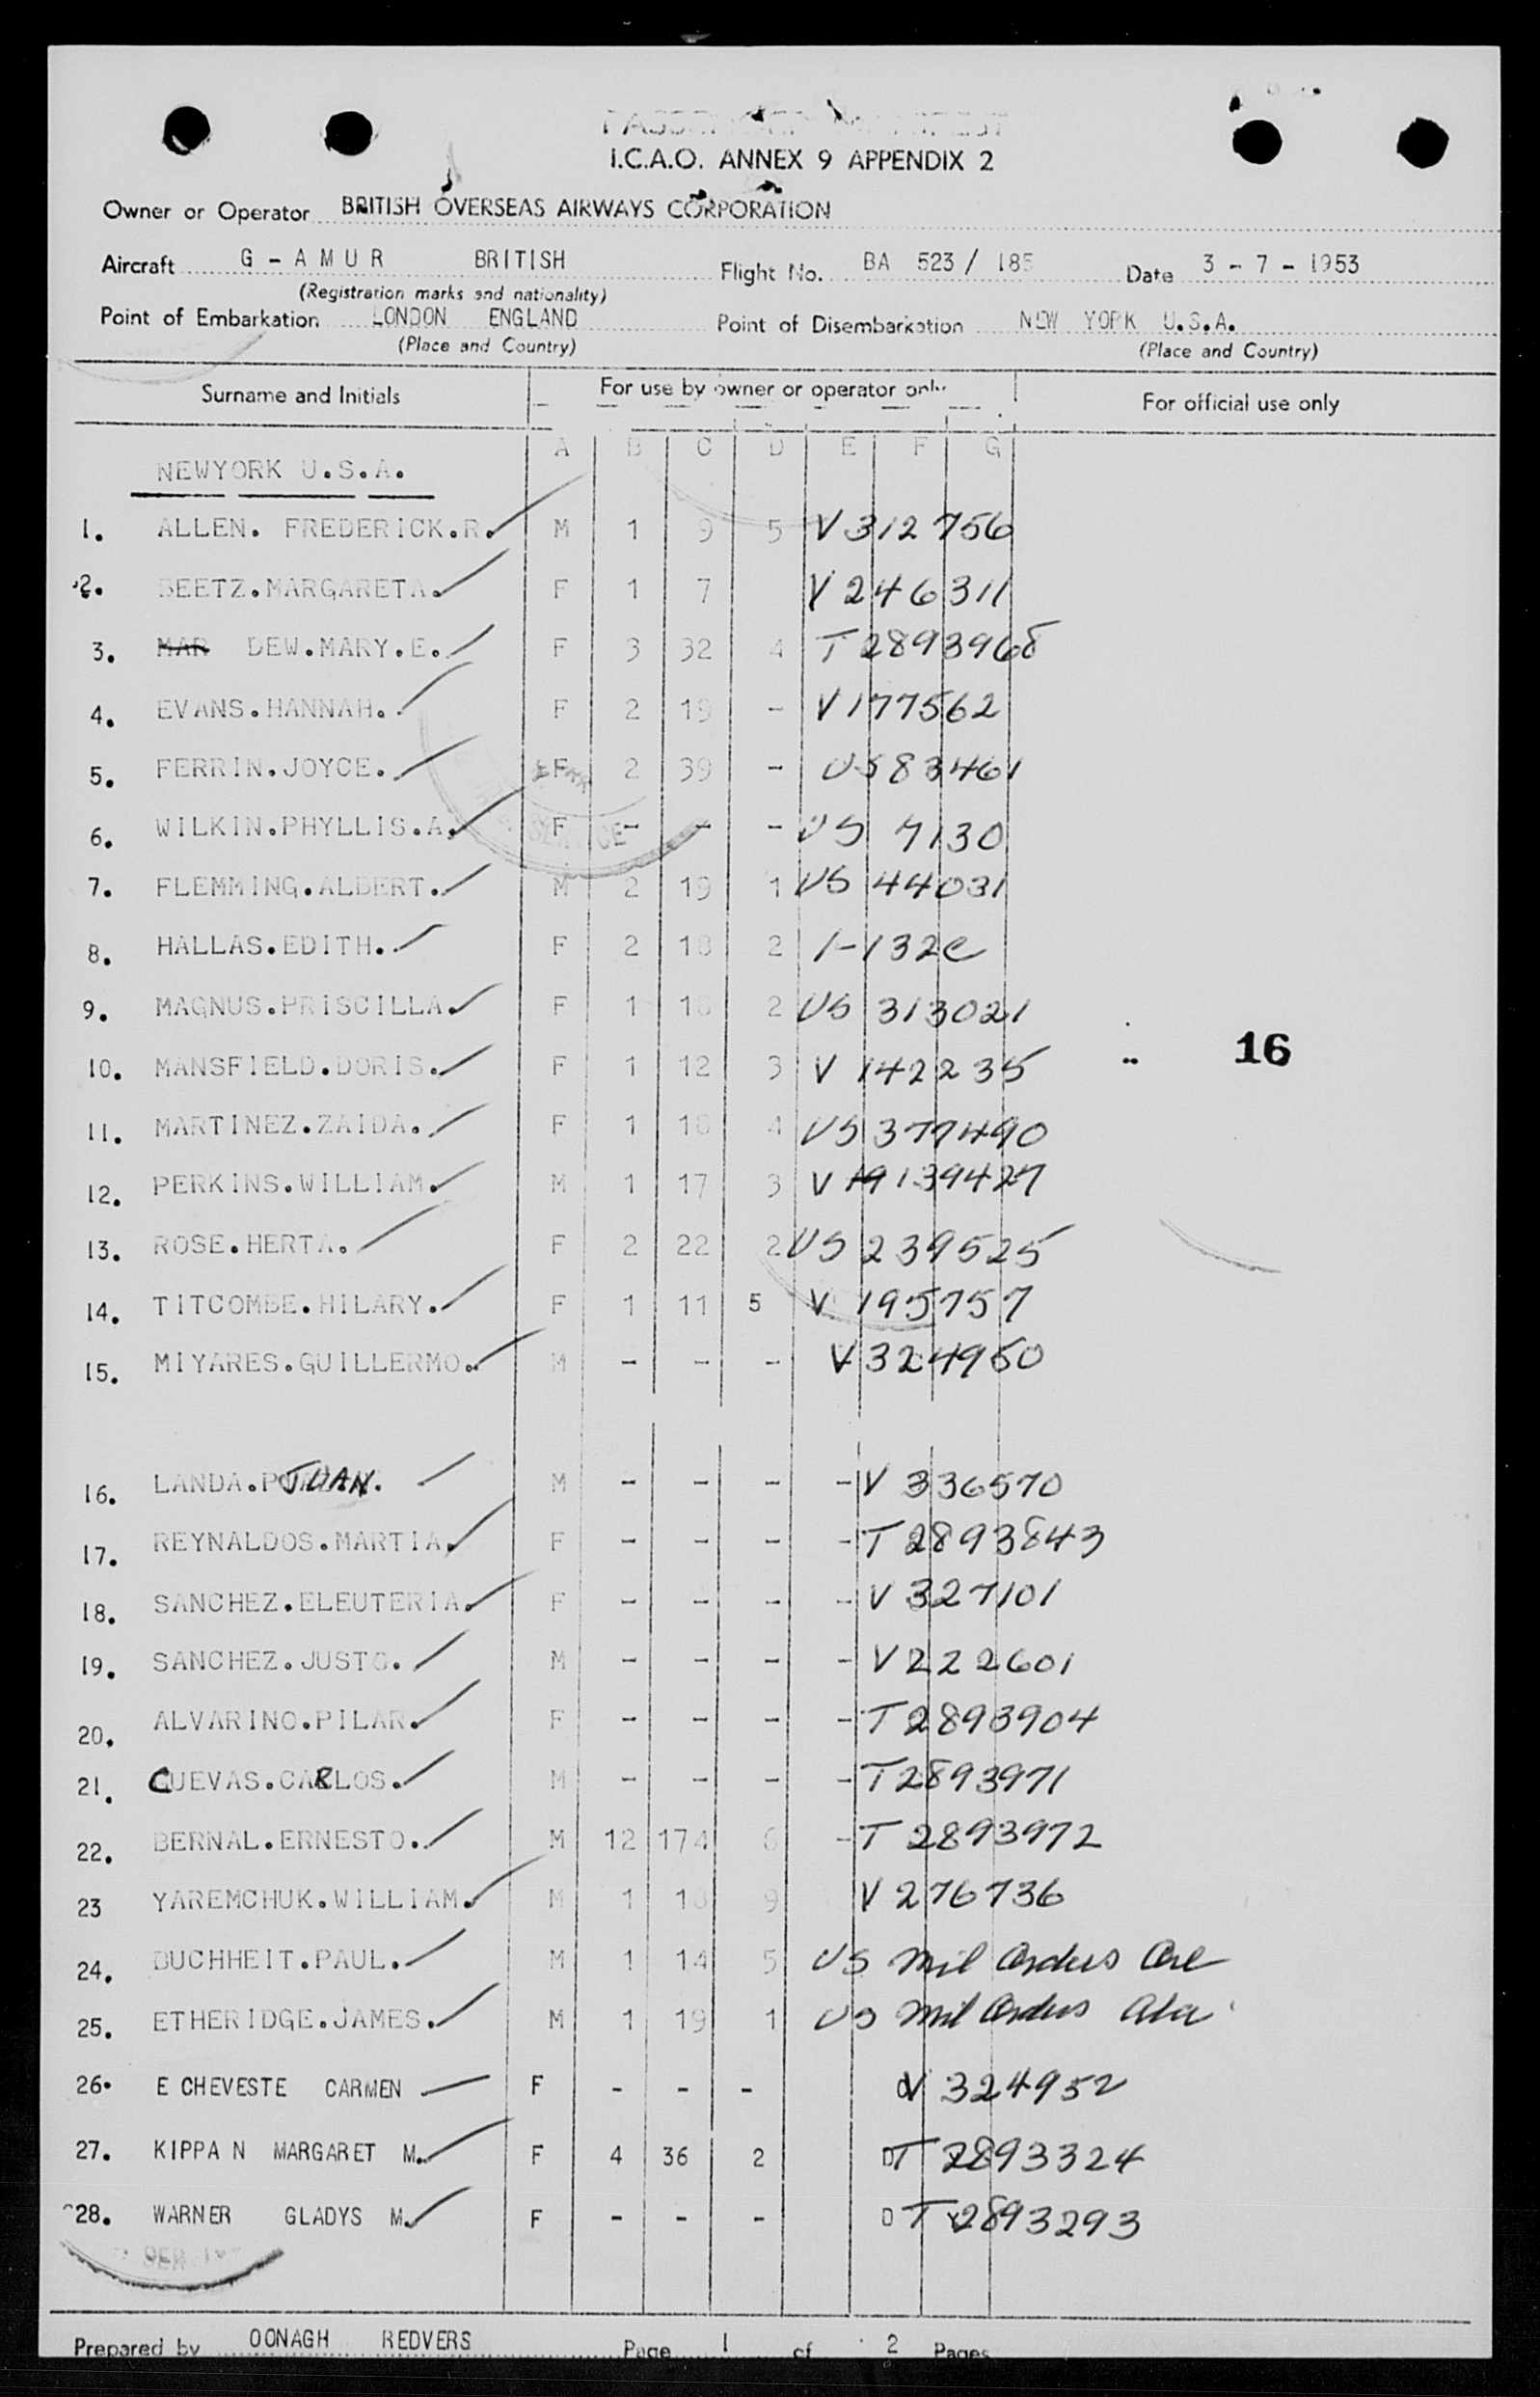 PASSENGER MANIFEST
I.C.A.O. ANNEX 9 APPENDIX 2
Owner or Operator BRITISH OVERSEAS AIRWAYS CORPORATION
Aircraft G - A M U R BRITISH Flight No. BA 523 / 185 Date 3 - 7 - 1953
(Registration marks and nationality)
Point of Embarkation LONDON ENGLAND Point of Disembarkation NEW YORK U.S.A.
(Place and Country) (Place and Country)
Surname and Initials For use by owner or operator only For official use only
A B C D E F G
NEWYORK U.S.A.
1. ALLEN. FREDERICK.R. M 1 9 5 V 312756
2. BEETZ.MARGARETA. F 1 7 V 246311
3. MAR DEW.MARY.E. F 3 32 4 T 2893968
4. EVANS.HANNAH. F 2 19 - V177562
5. FERRIN.JOYCE. F 2 39 - US 83461
6. WILKIN.PHYLLIS.A. F - - - US 7130
7. FLEMMING.ALBERT. M 2 19 1 US 44031
8. HALLAS.EDITH. F 2 18 2 1-132C
9. MAGNUS.PRISCILLA. F 1 18 2 US 313021
10. MANSFIELD.DORIS. F 1 12 3 V 142235
16
11. MARTINEZ.ZAIDA. F 1 18 4 US 377490
12. PERKINS.WILLIAM. M 1 17 3 V 9139427
13. ROSE.HERTA. F 2 22 2 US 239525
14. TITCOMBE.HILARY. F 1 11 5 V 195757
15. MIYARES.GUILLERMO. M - - - V 324950
16. LANDA. JUAN. M - - - - V 336570
17. REYNALDOS.MARTIA. F - - - - T 2893843
18. SANCHEZ.ELEUTERIA. F - - - - V 327101
19. SANCHEZ.JUSTO. M - - - - V 222601
20. ALVARINO.PILAR. F - - - - T 2893904
21. CUEVAS.CARLOS. M - - - - T 2893971
22. BERNAL.ERNESTO. M 12 174 6 - T 2893972
23 YAREMCHUK.WILLIAM. M 1 18 9 V 276736
24. BUCHHEIT.PAUL. M 1 14 5 US Mil Orders
25. ETHERIDGE.JAMES. M 1 19 1 US Mil Orders
26. E CHEVESTE CARMEN F - - - V 324952
27. KIPPA N MARGARET M. F 4 36 2 DT 2893324
28. WARNER GLADYS M. F - - - D T 2893293
Prepared by OONAGH REDVERS Page 1 of 2 Pages